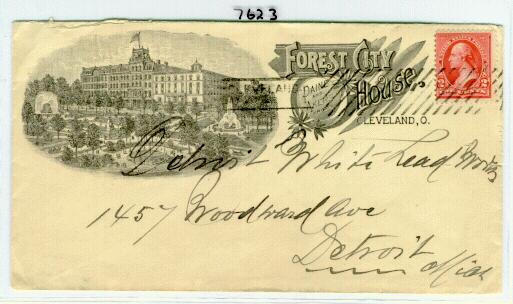 7623
FOREST CITY
House
CLEVELAND, O.
Detroit White Lead Works
1457 Woodward Ave
Detroit
Mich